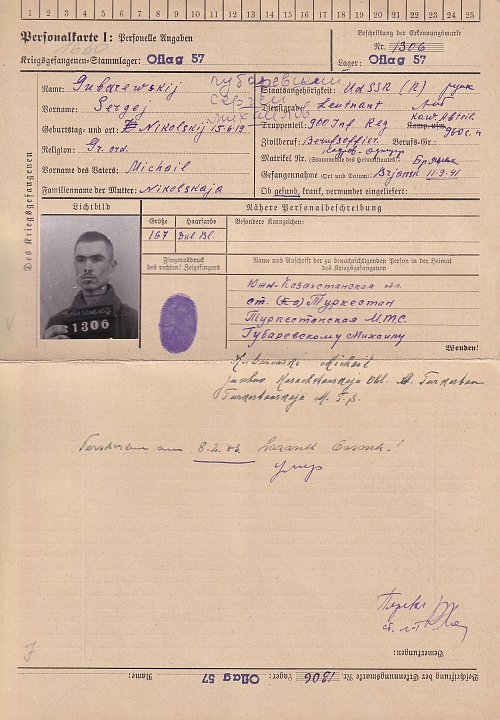 1 2 3 4 5 6 7 8 9 10 11 12 13 14 15 16 17 18 19 20 21 22 23 24 25
Personalkarte I: Personelle Angaben
Kriegsgefangenen-Stammlager: Oflag 57
Beschriftung der Erkennungsmarke
Nr. 1306
Lager: Oflag 57
Des Kriegsgefangenen
Name: Gubarewskij
Губаревский
Vorname: Sergej
Сергей
Михайлов
Geburtstag und -ort: Nikolskij 15.6.19
Religion: Gr. ord.
Vorname des Vaters: Michail
Familienname der Mutter: Nikolskaja
Staatsangehörigkeit: UdSSR (R)
Dienstgrad: Leutnant
Truppenteil: 900 Inf Reg Komp. usw.
Zivilberuf: Berufsoffizier. Berufs-Gr.:
Matrikel Nr. (Stammrolle des Heimatstaates):
Gefangennahme (Ort und Datum): Brjansk 11.9.41
Ob gesund, krank, verwundet eingeliefert:
Lichtbild
1306
Nähere Personalbeschreibung
Größe Haarfarbe Besondere Kennzeichen:
167 Dkl Bl.
Fingerabdruck
des rechten! Zeigefingers
Name und Anschrift der zu benachrichtigenden Person in der Heimat
des Kriegsgefangenen
Южн-Казахстанская обл.
ст. Туркестан
Туркестанская М.Т.С.
Губаревскому Михаилу
Wenden!
Michail
Kasachstanskaja Obl. St. Turkestan
Turkestanskaja M. T. S.
Verstorben am 8.2.43 Lazarett
умер
Bemerkungen:
Beschriftung der Erkennungsmarke Nr. 1306 Lager: Oflag 57 Name: